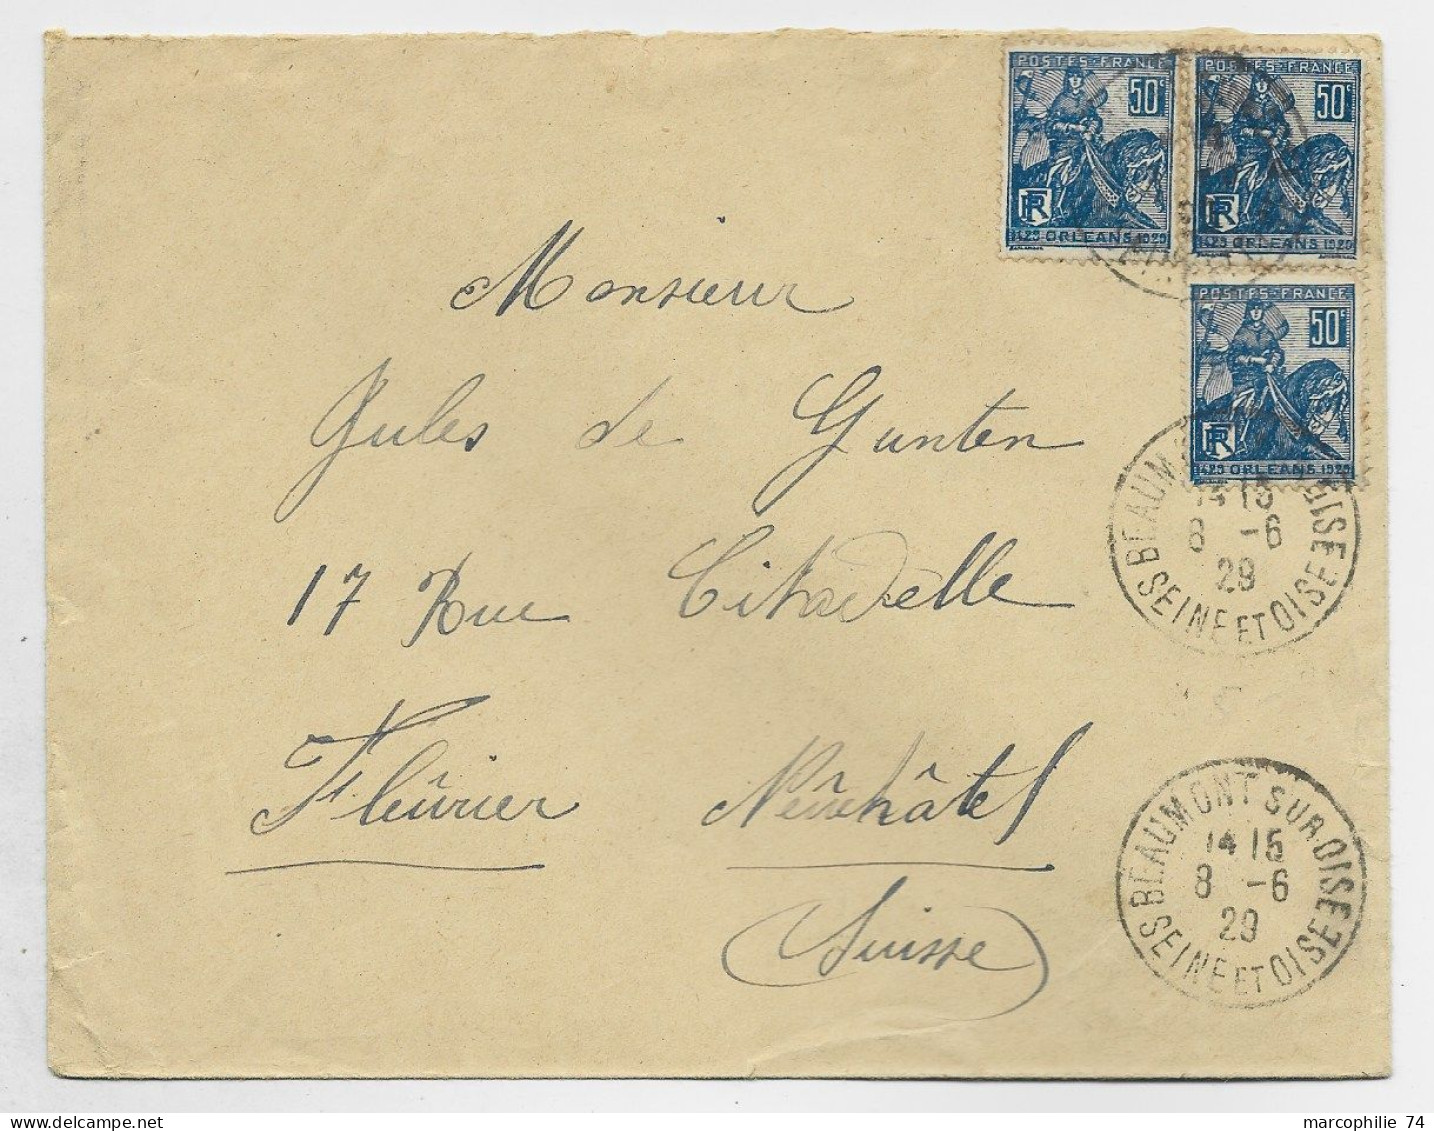 POSTES-FRANCE
50c
RF
1429 ORLEANS 1929
POSTES-FRANCE
50c
RF
1429 ORLEANS 1929
POSTES-FRANCE
50c
RF
1429 ORLEANS 1929
Monsieur
Jules de Gunten
17 Rue Citadelle
Fleûrier Neûchâtel
(Suisse)
BEAUMONT OISE
14 15
8 -6
29
SEINE ET OISE
BEAUMONT SUR OISE
14 15
8 -6
29
SEINE ET OISE
marcophilie 74